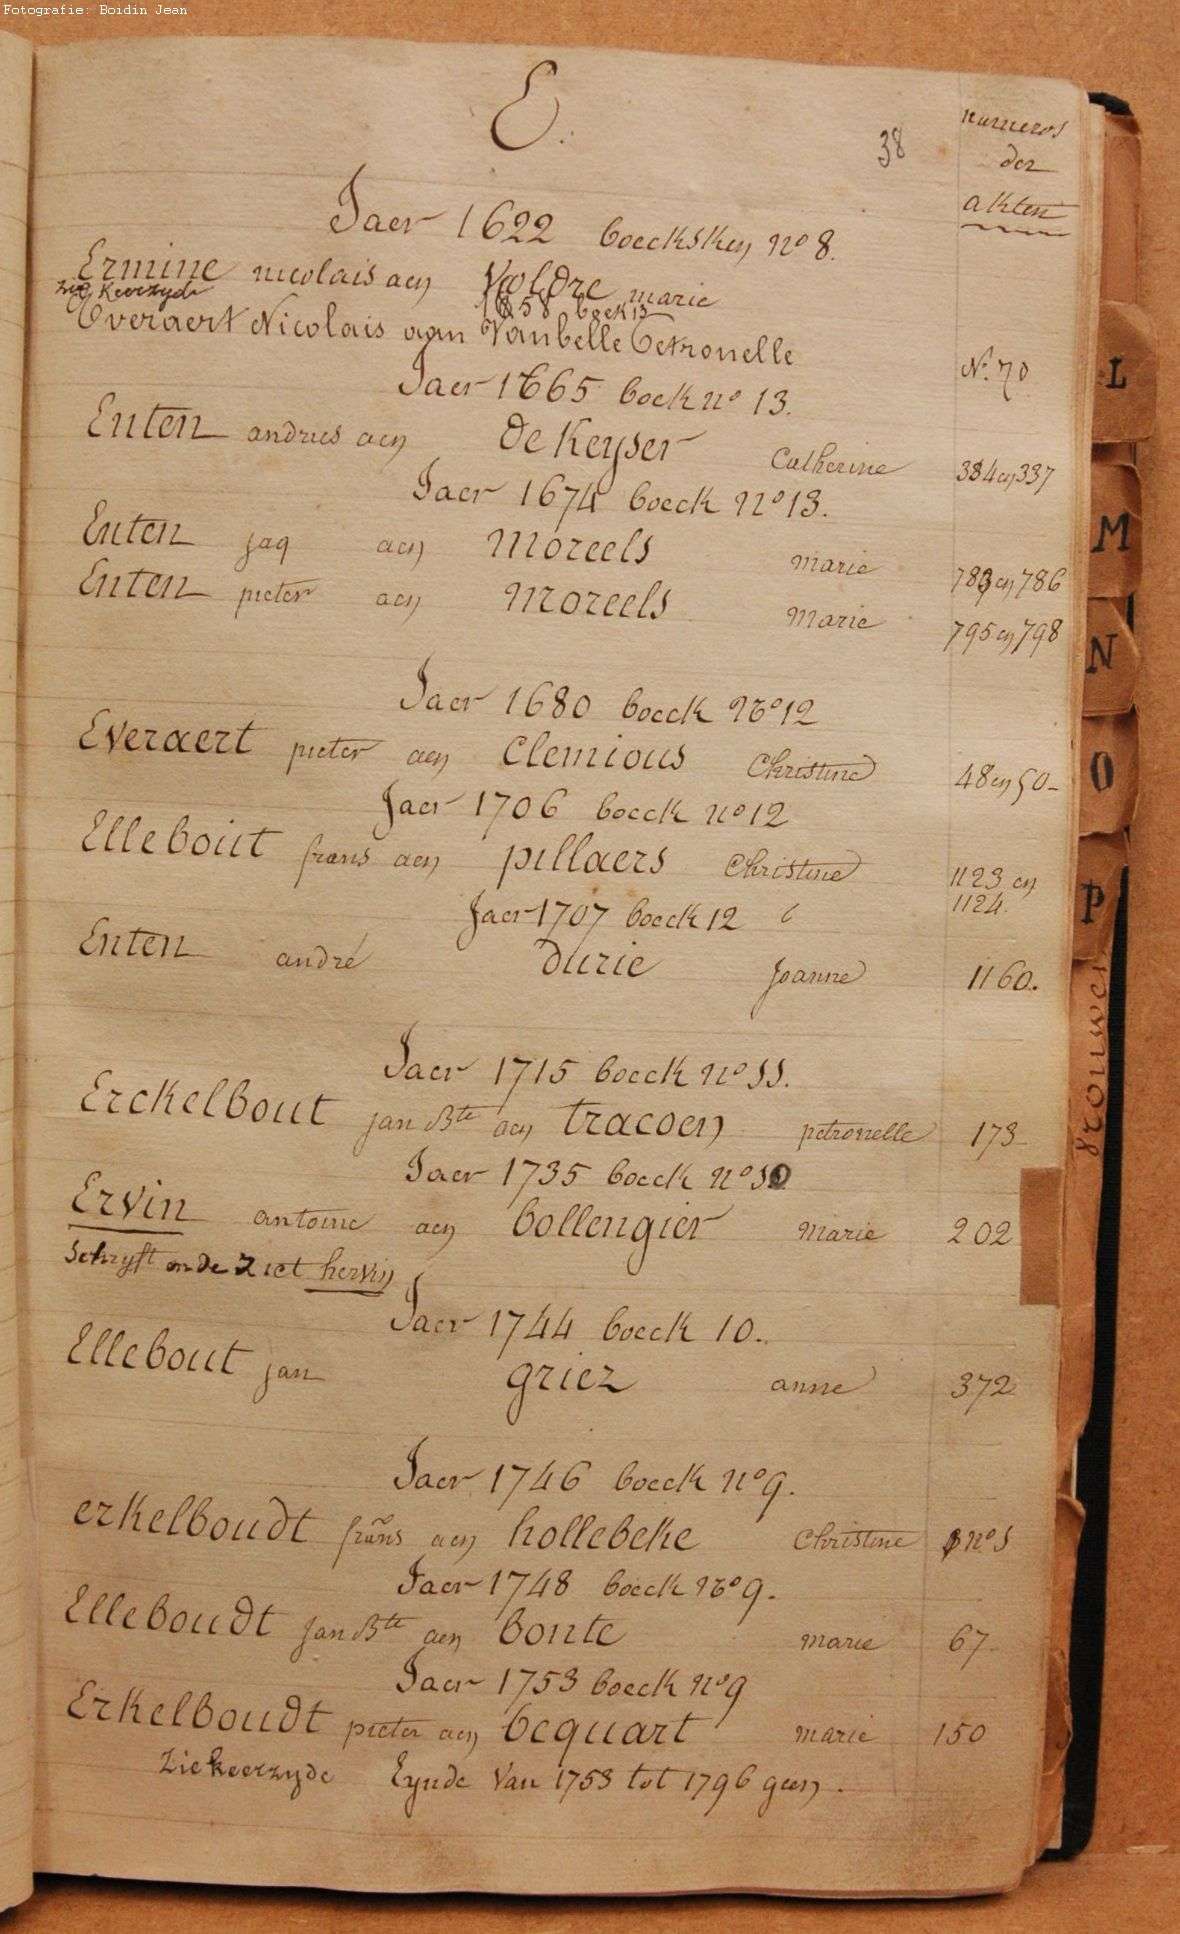 Fotografie: Boidin Jean
E.
38
numeros
der
akten
Jaer 1622 boecksken no 8.
Ermine nicolais aen Voldre marie
Zie Keerzyde
1658 boek 13
Everaert Nicolais aan Vanbelle Petronelle
No. 70
Jaer 1665 boek no 13.
Enten andries aen de Keyser Catherine 334 en 337
Jaer 1674 boeck No 13.
Enten jaq aen Moreels marie 783 en 786
Enten pieter aen Moreels Marie 795 en 798
Jaer 1680 boeck No 12
Everaert pieter aen Clemious Christine 48 en 50-
Jaer 1706 boeck no 12
Ellebout frans aen pillaers Christine 1123 en
1124.
Jaer 1707 boeck 12
Enten andré durie Joanne 1160.
Jaer 1715 boeck no 11.
Erckelbout jan Bte aen tracoen petronelle 173
Jaer 1735 boeck no 10
Ervin antoine aen bollengier Marie 202
Schryft ende ziet hervin
Jaer 1744 boeck 10.
Ellebout jan griez anne 372
Jaer 1746 boeck no 9.
erkelboudt frans aen hollebeke Christine no 1
Jaer 1748 boeck No 9.
Elleboudt jan Bte aen bonte marie 67
Jaer 1753 boeck no 9
Erkelboudt pieter aen bequart marie 150
Zie keerzyde Eynde van 1753 tot 1796 geen.
L
M
N
O
P
vrouwen